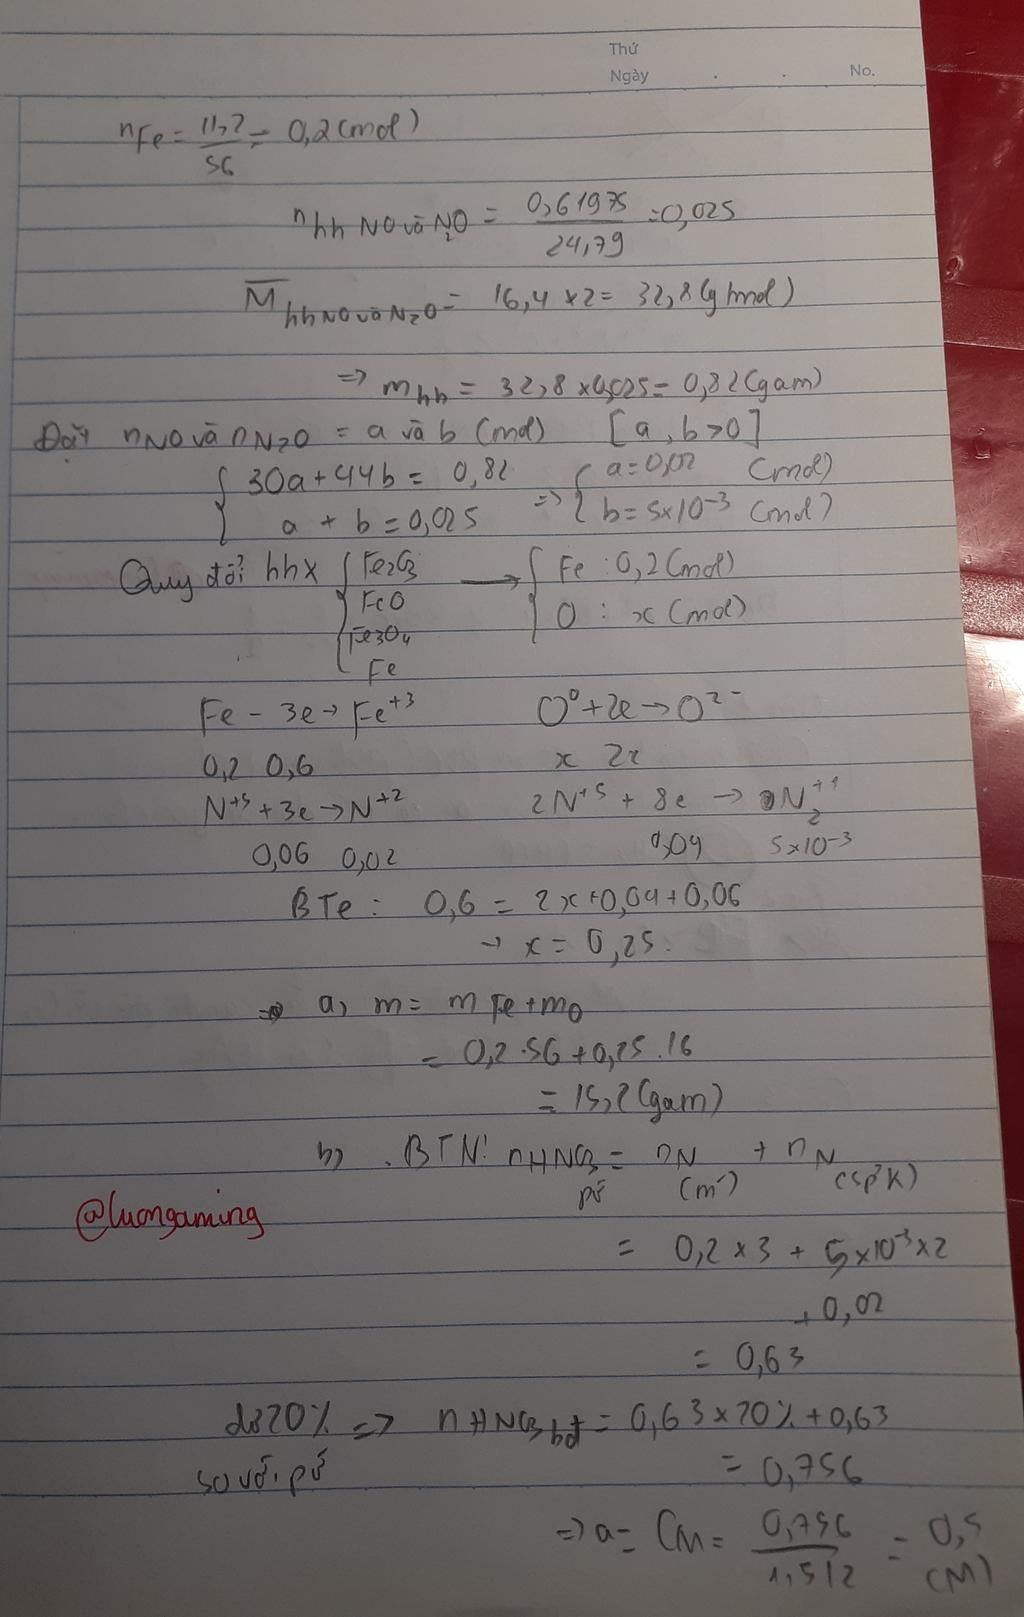 Thứ
Ngày . . No.
nFe = 11,2/56 = 0,2 (mol)
n hh NO và N2O = 0,61975/24,79 = 0,025
M̅ hh NO và N2O = 16,4 x 2 = 32,8 (g/mol)
=> m hh = 32,8 x 0,025 = 0,82 (gam)
Đặt nNO và nN2O = a và b (mol) [a, b > 0]
{ 30a + 44b = 0,82 => { a = 0,02 (mol)
a + b = 0,025 b = 5x10⁻³ (mol)
Quy đổi hh X { Fe2O3 → { Fe : 0,2 (mol)
FeO O : x (mol)
Fe3O4
Fe
Fe - 3e → Fe⁺³ O⁰ + 2e → O²⁻
0,2 0,6 x 2x
N⁺⁵ + 3e → N⁺² 2N⁺⁵ + 8e → N2⁺¹
0,06 0,02 0,04 5x10⁻³
BTe : 0,6 = 2x + 0,04 + 0,06
→ x = 0,25
=> a, m = mFe + mO
= 0,2 . 56 + 0,25 . 16
= 15,2 (gam)
b, . BTN: nHNO3 pứ = nN (m') + nN (sp' k)
@luongaming
= 0,2 x 3 + 5x10⁻³x2
+ 0,02
= 0,63
dư 20% => nHNO3 bđ = 0,63 x 20% + 0,63
so với pứ = 0,756
=> a = CM = 0,756/1,512 = 0,5 (M)